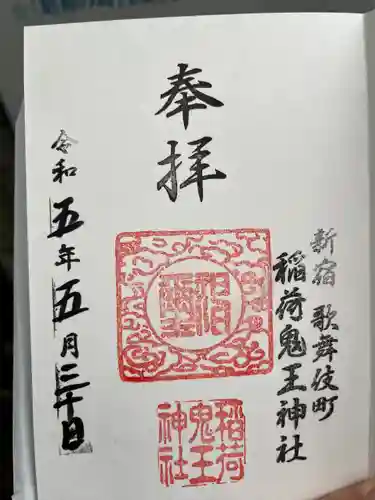 新宿 歌舞伎町
稲荷鬼王神社
奉拝
稲荷
鬼王
神社
令和五年五月三十日